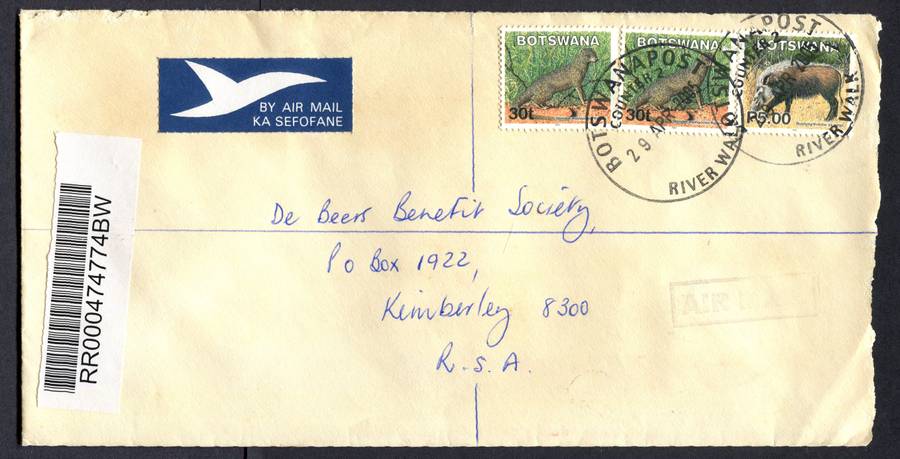 BY AIR MAIL
KA SEFOFANE
BOTSWANA
30t
BOTSWANA
30t
BOTSWANA
P5.00
BOTSWANAPOST
COUNTER 2
29 APR
RIVER WALK
BOTSWANAPOST
COUNTER 2
APR
RIVER WALK
RR000474774BW
De Beers Benefit Society,
Po Box 1922,
Kimberley 8300
R.S.A.
AIR MAIL